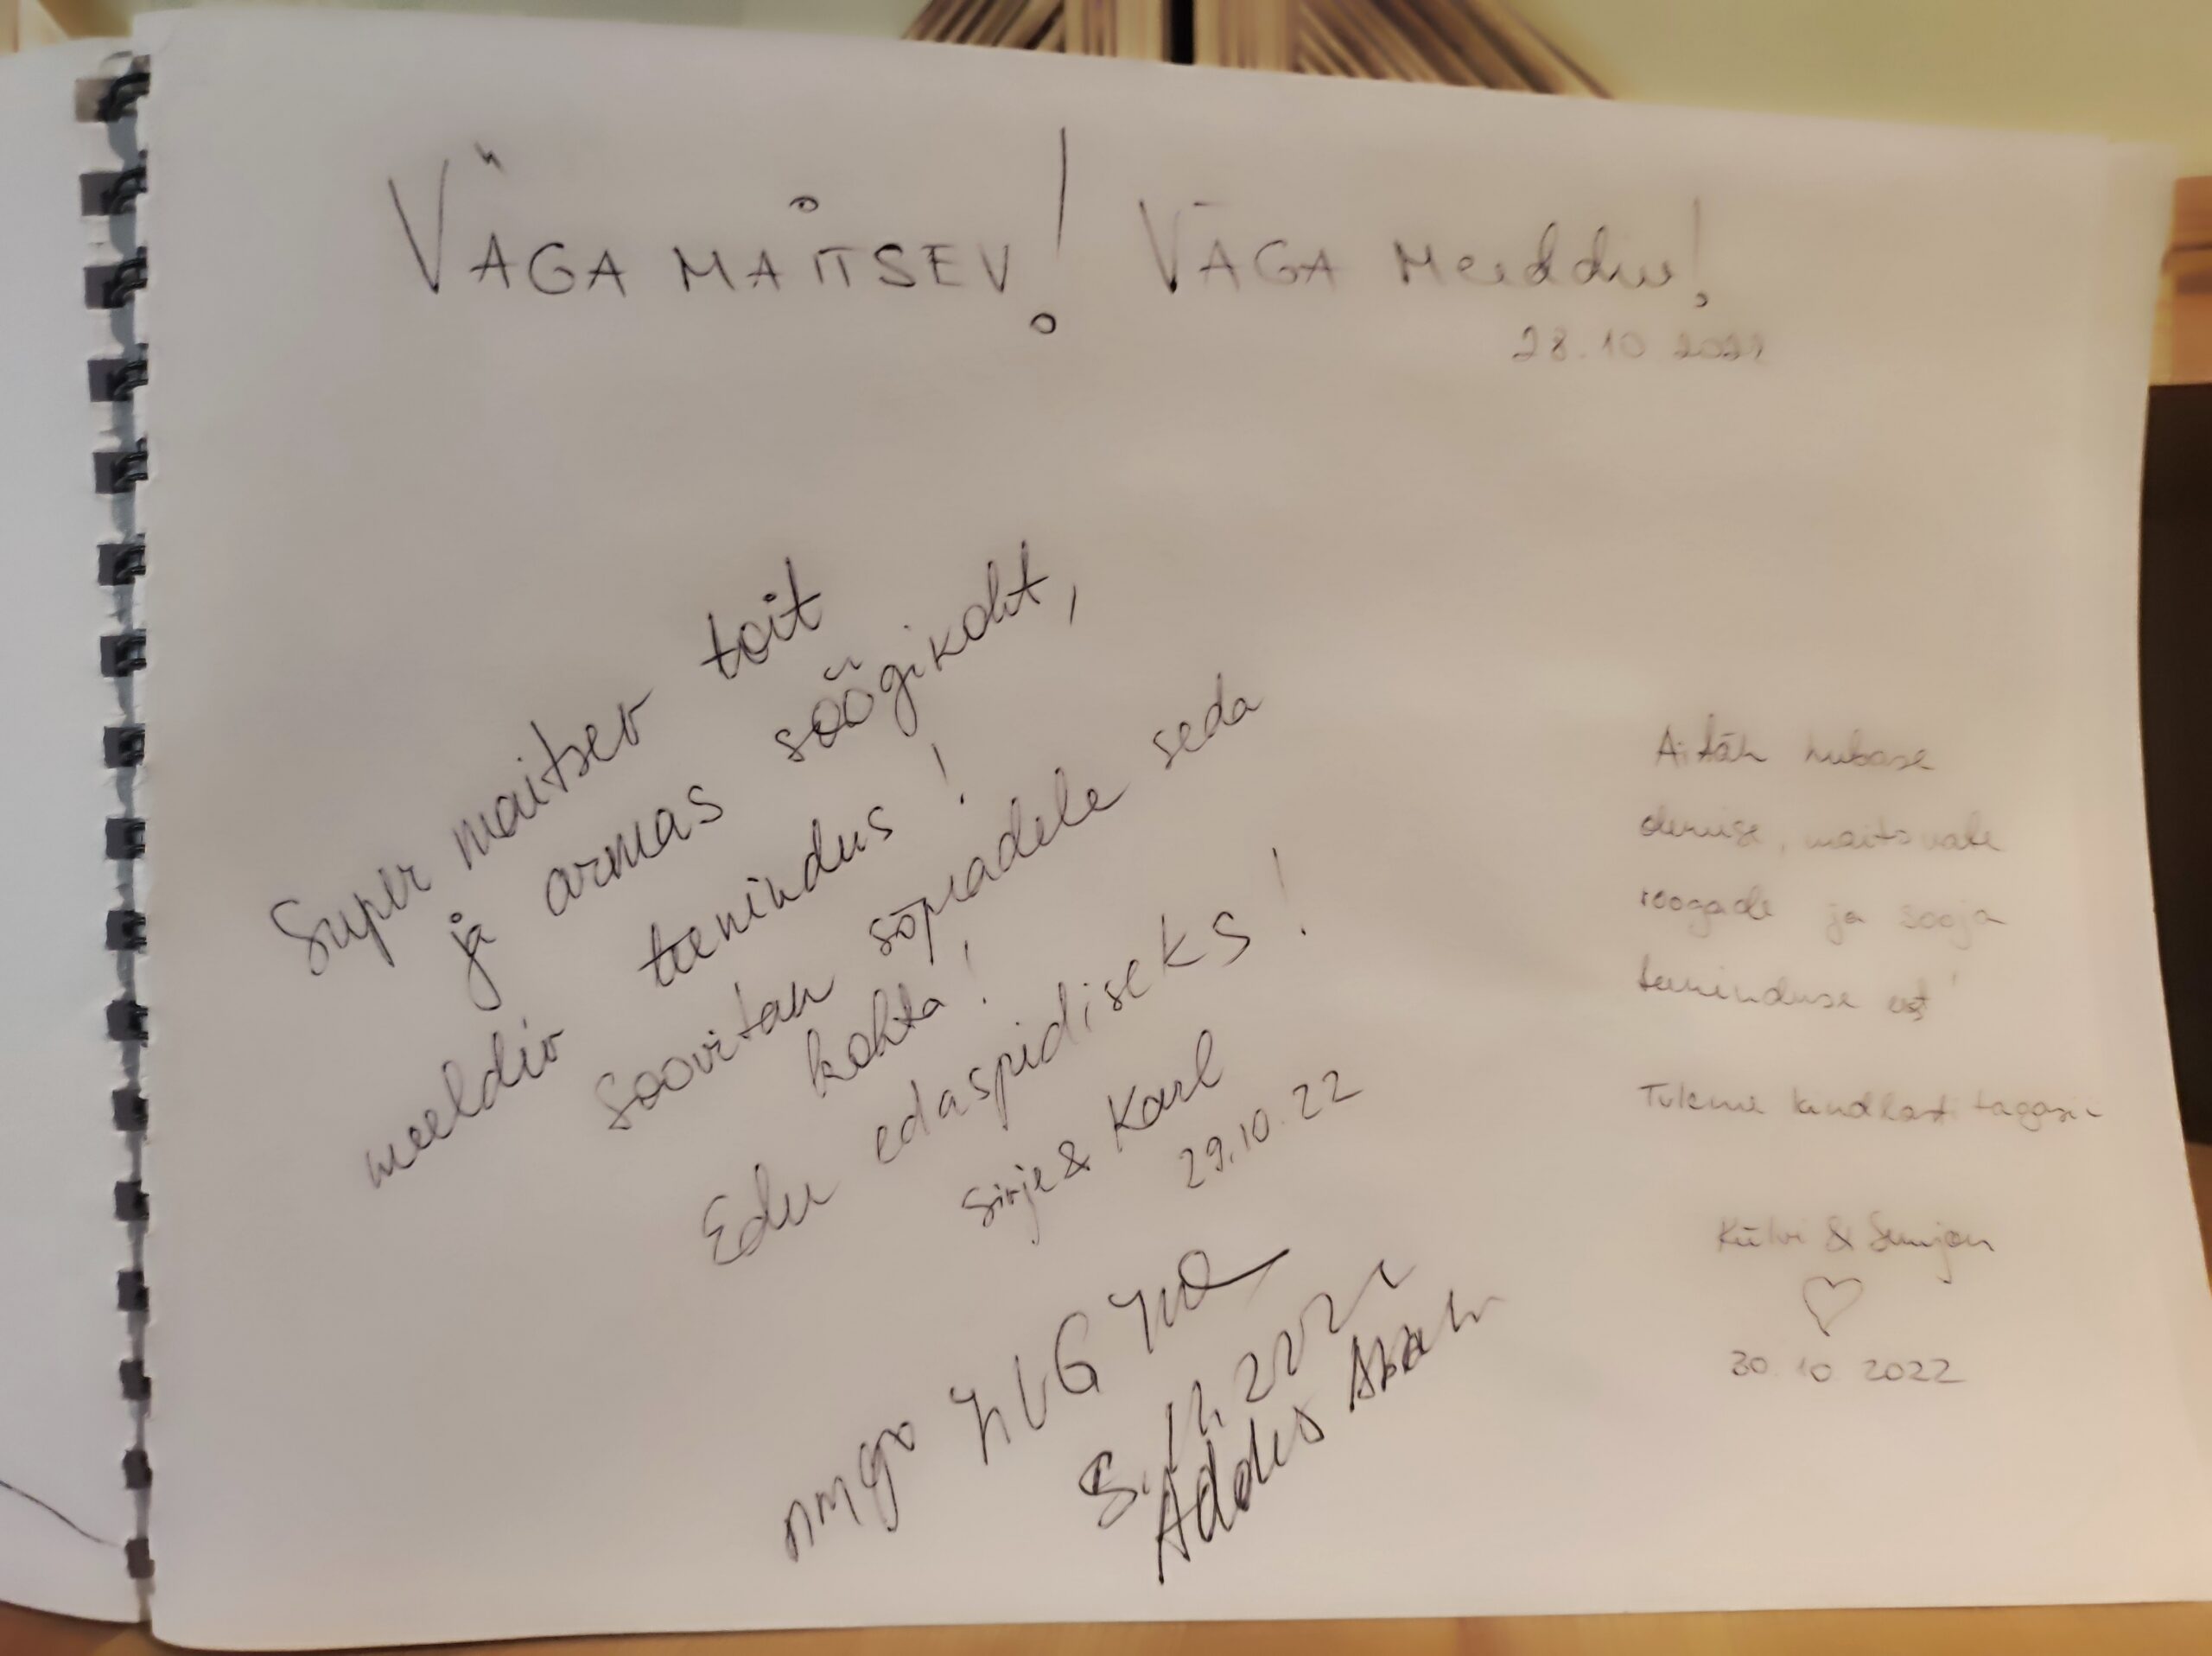 VÄGA MAITSEV! VÄGA Meeldiv!
28.10 2022
Super maitsev toit
ja armas söögikoht,
meeldiv teenindus!
Soovitan sõpradele seda
kohta!
Edu edaspidiseks!
Sirje & Karl
29.10.22
Addis
Aitäh hubase
olemise, maitsvate
roogade ja sooja
teeninduse eest!
Tuleme kindlasti tagasi
&
30.10 2022